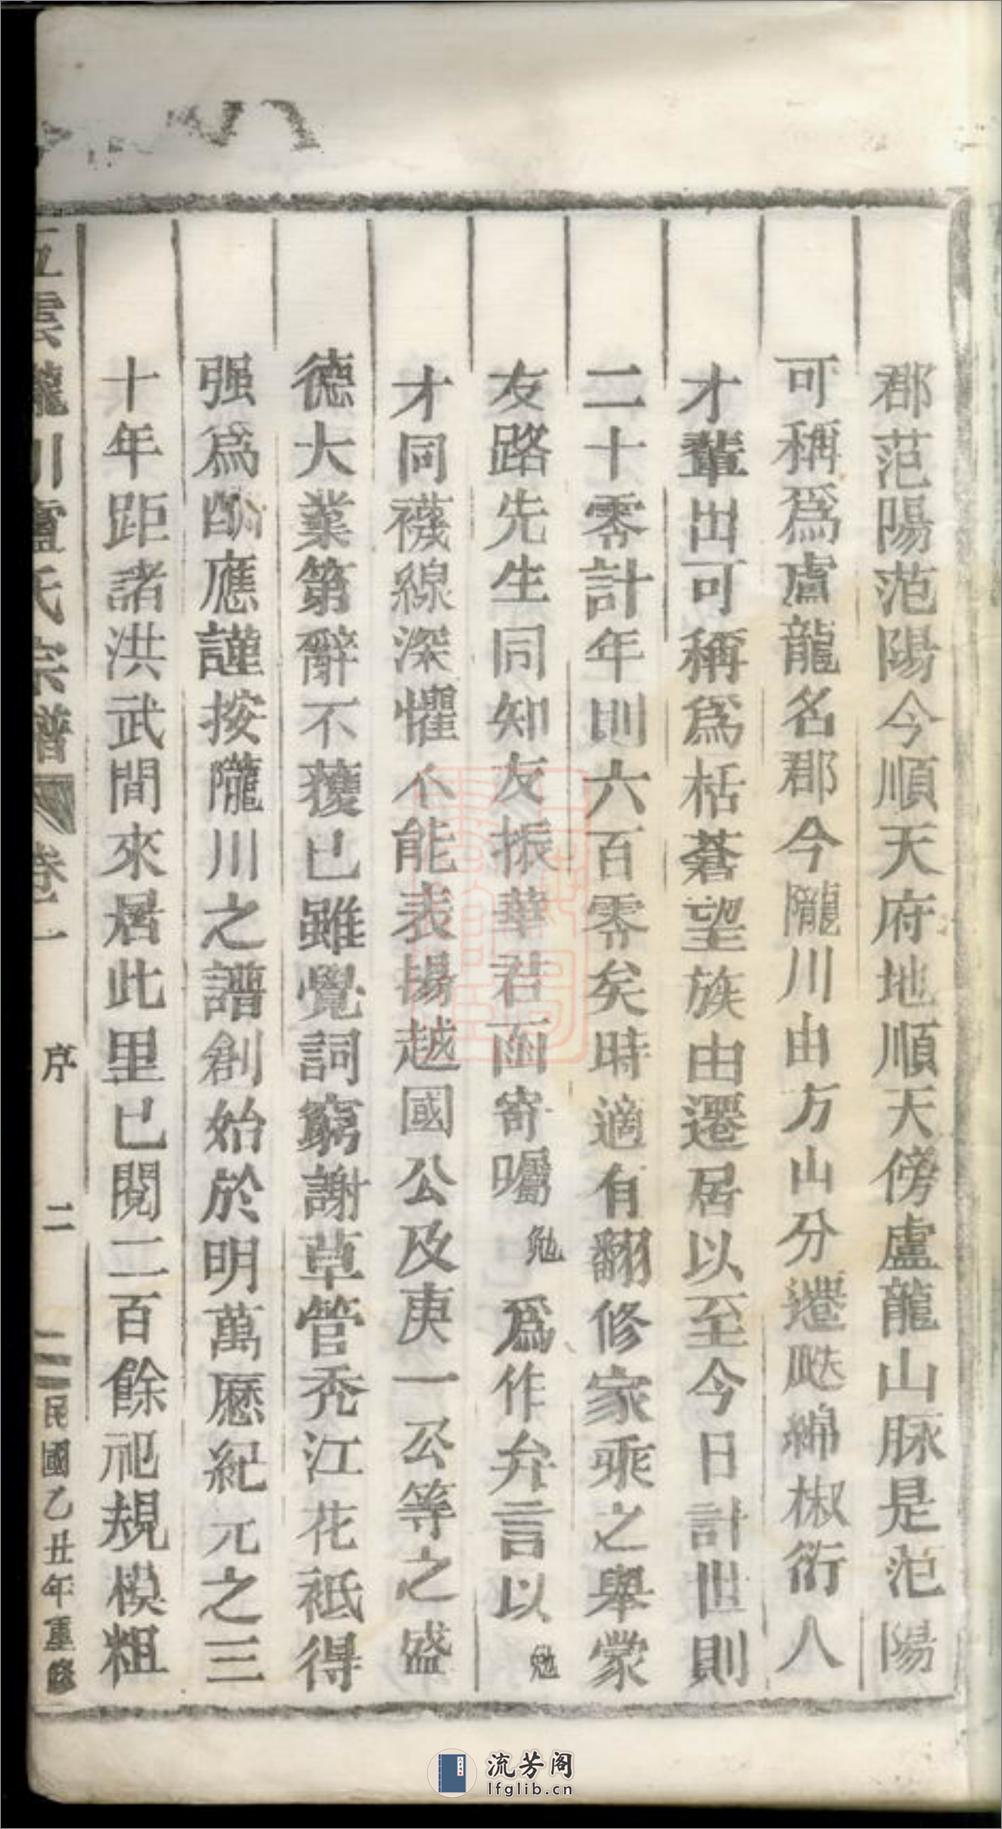 郡范陽范陽今順天府地順天傍盧龍山脉是范陽
可稱爲盧龍名郡今隴川由方山分遷瓞綿椒衍人
才輩出可稱爲栝蒼望族由遷居以至今日計世則
二十零計年則六百零矣時適有翻修家乘之舉蒙
友路先生同知友振華君函寄囑勉爲作弁言以勉
才同襪線深懼不能表揚越國公及庚一公等之盛
德大業第辭不獲已雖覺詞窮謝草管禿江花祇得
强爲酬應謹按隴川之譜創始於明萬厯紀元之三
十年距諸洪武間來居此里已閱二百餘祀規模粗
五雲隴川盧氏宗譜 卷一 序 二 民國乙丑年重修
流芳阁
lfglib.cn